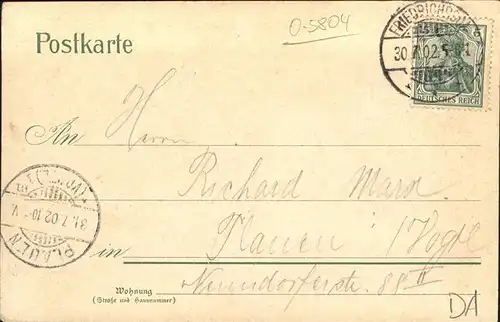 0-5804
Postkarte
30.7.02.
DEUTSCHES REICH
An Herrn
Richard Marx
31.7.02.10-
PLAUEN
Plauen i/Vogtl
in
Neundorferstr. 88 II
Wohnung
(Straße und Hausnummer)
DA